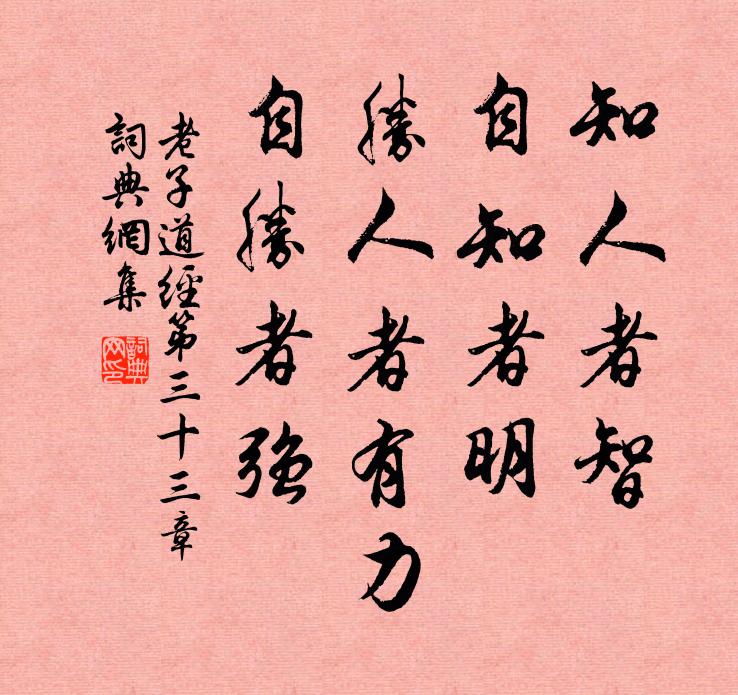 知人者智
自知者明
勝人者有力
自勝者強
老子道經第三十三章
詞典網集
詞典网印